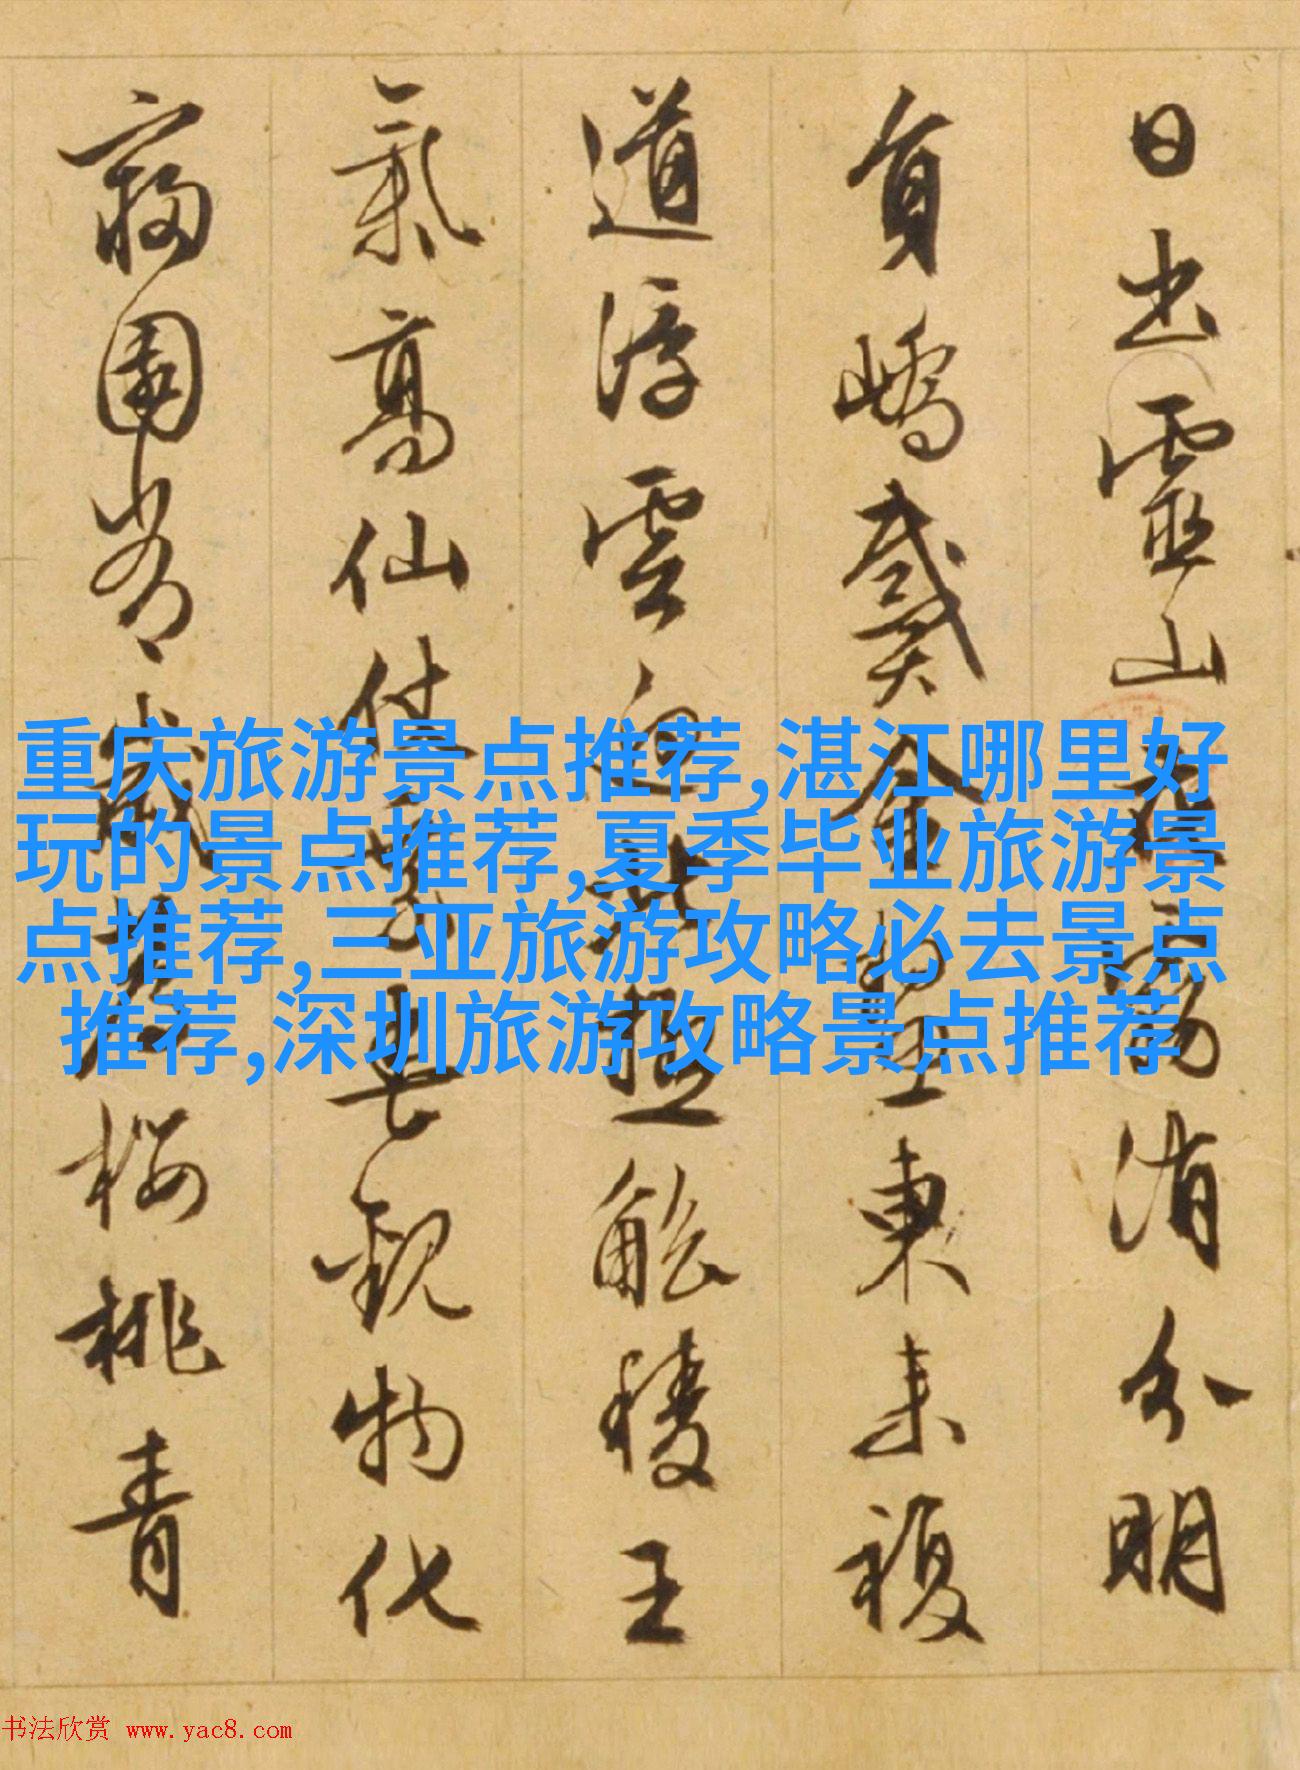 日出靈山分明
負嶠戴金東來複
道浮雲觚稜王
氣高仙仗觀物化
寢園常歲櫻桃青
重庆旅游景点推荐,湛江哪里好
玩的景点推荐,夏季毕业旅游景
点推荐,三亚旅游攻略必去景点
推荐,深圳旅游攻略景点推荐
书法欣赏 www.yac8.com